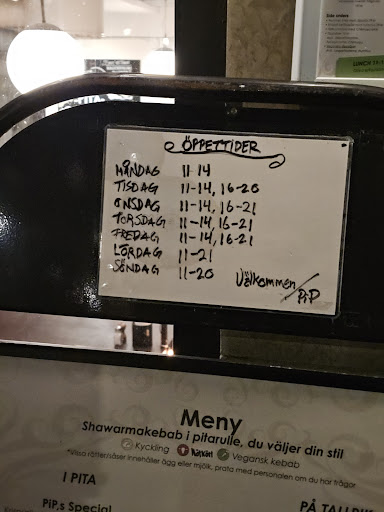 Side orders
LUNCH 11-1
ÖPPETTIDER
MÅNDAG 11-14
TISDAG 11-14, 16-20
ONSDAG 11-14, 16-21
TORSDAG 11-14, 16-21
FREDAG 11-14, 16-21
LÖRDAG 11-21
SÖNDAG 11-20
Välkommen
/PiP
Meny
Shawarmakebab i pitarulle, du väljer din stil
Kyckling Växari Vegansk kebab
*Vissa rätter/såser innehåller ägg eller mjölk, prata med personalen om du har frågor
I PITA
PÅ TALLRIK
PiP,s Special